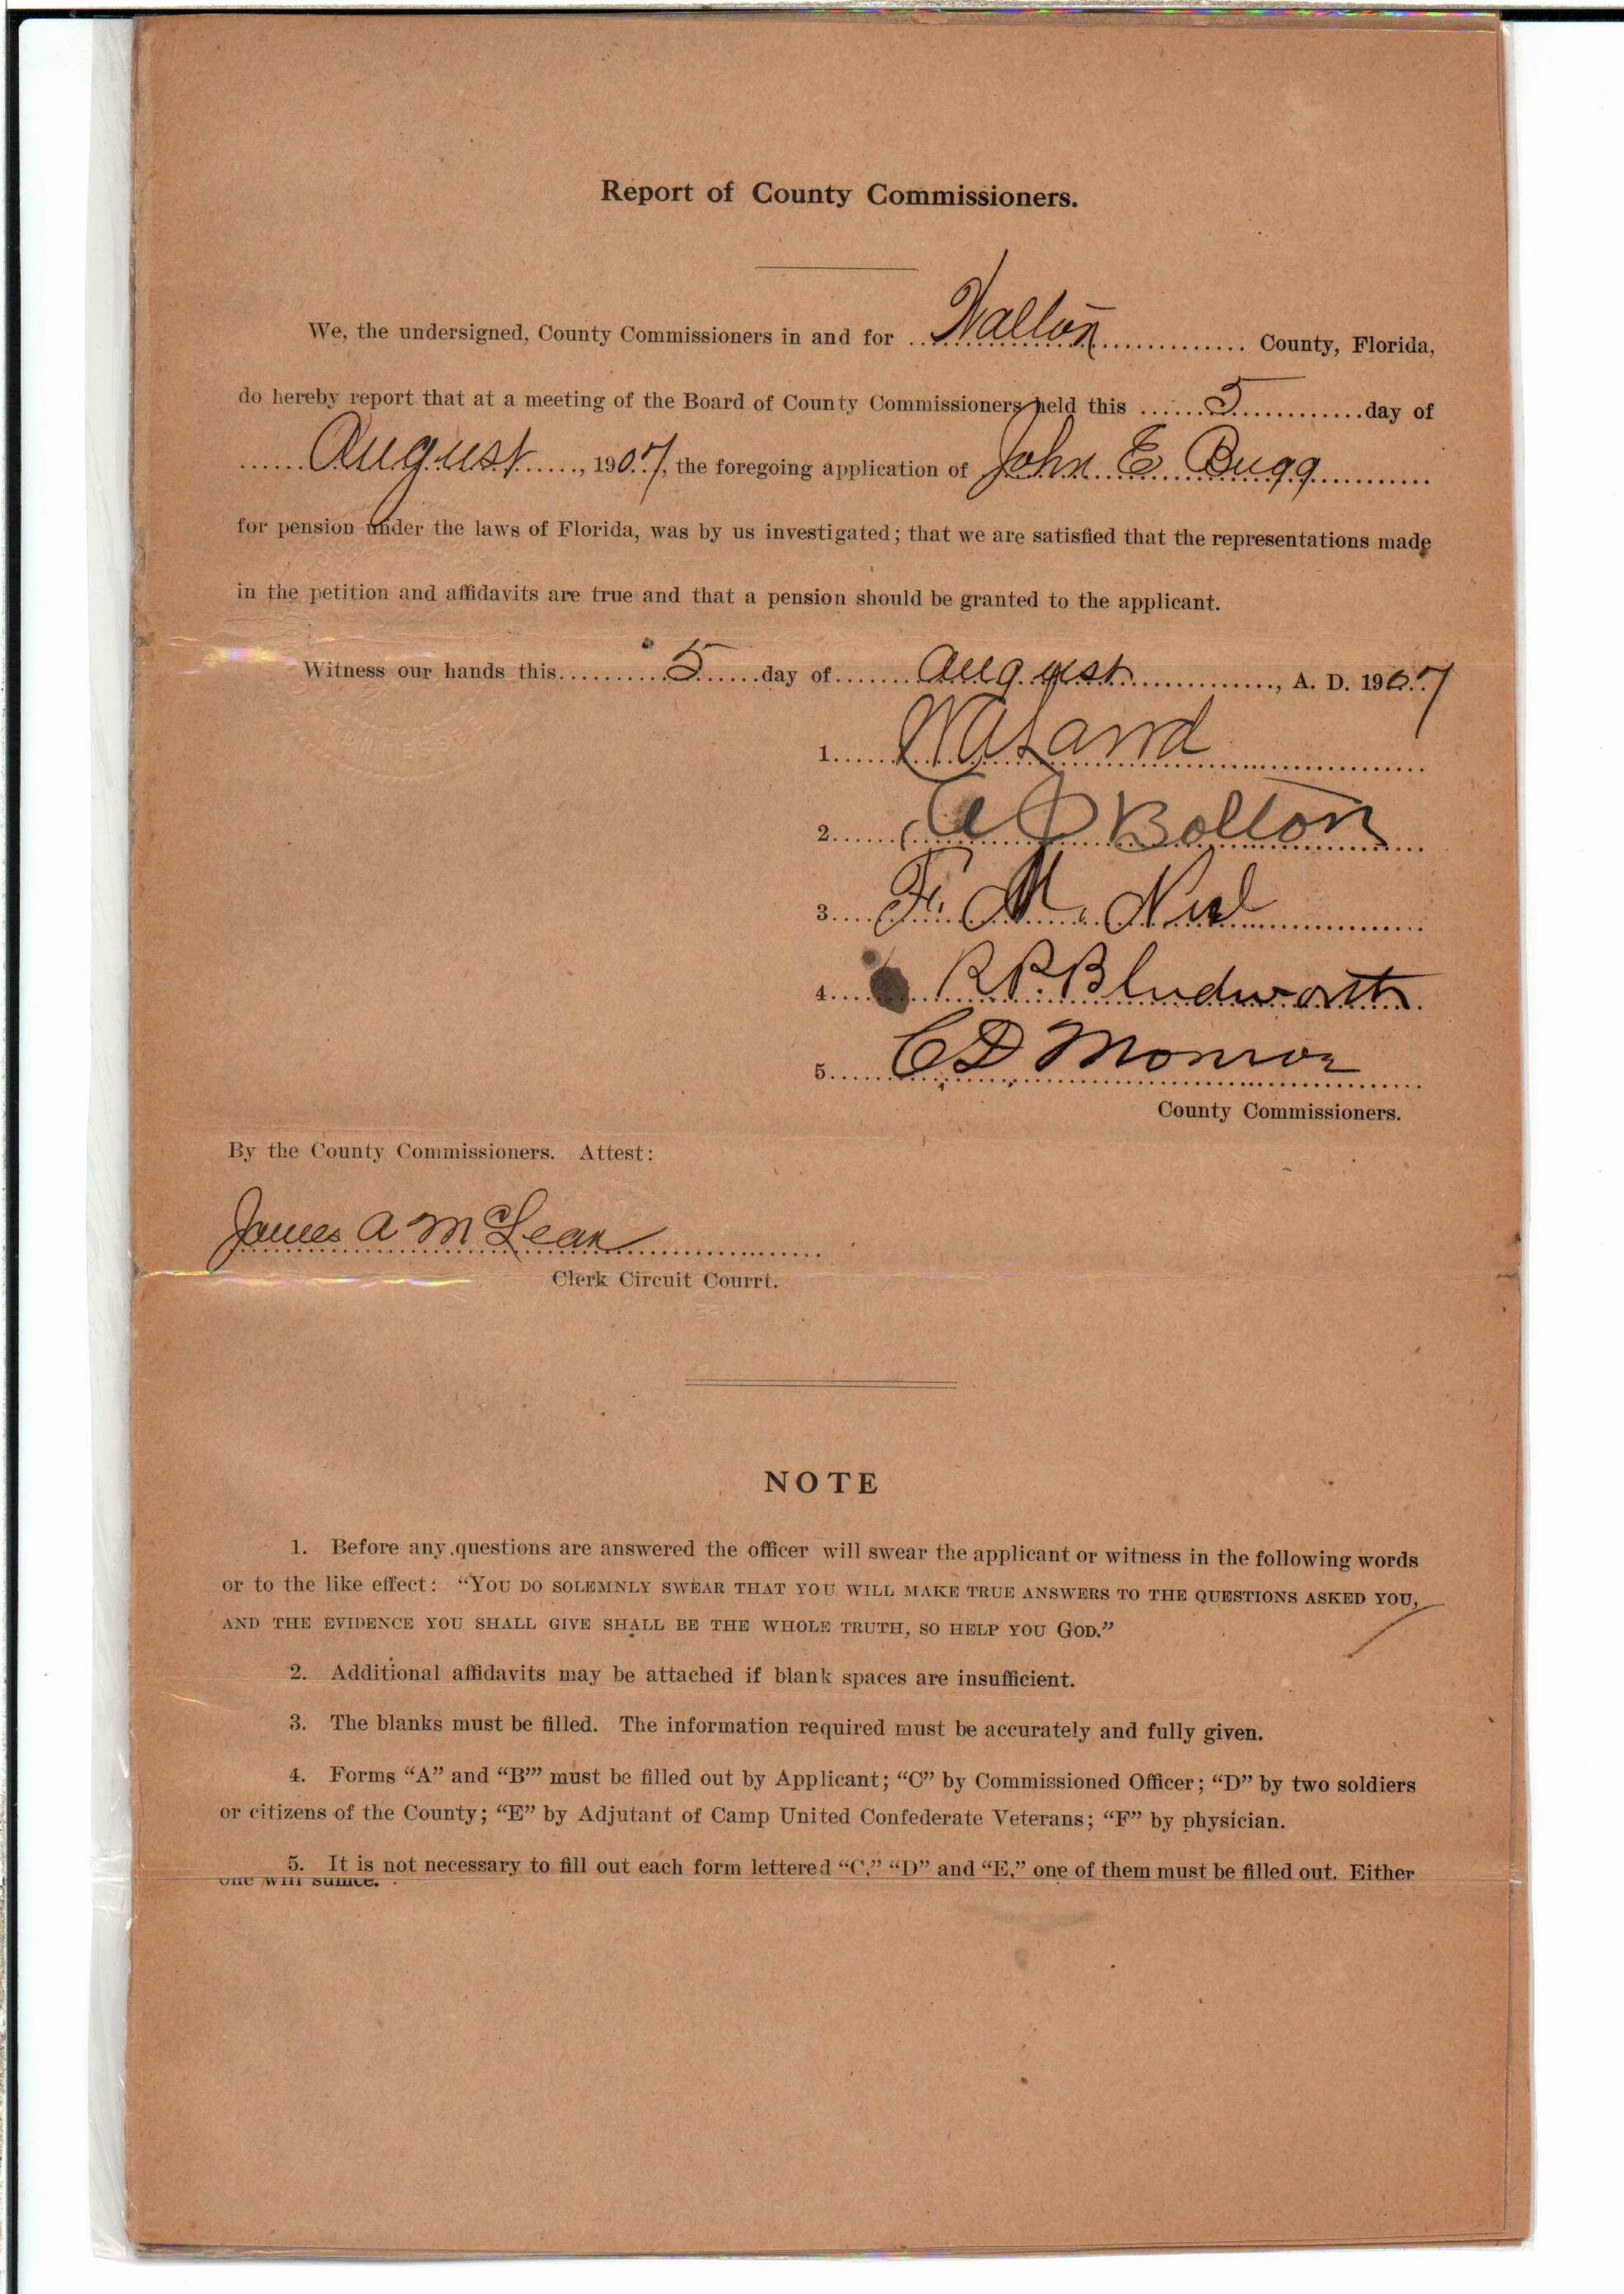 Report of County Commissioners.
We, the undersigned, County Commissioners in and for ..Walton.............. County, Florida,
do hereby report that at a meeting of the Board of County Commissioners held this ......5............day of
......August....., 1907, the foregoing application of John E Bugg
for pension under the laws of Florida, was by us investigated; that we are satisfied that the representations made
in the petition and affidavits are true and that a pension should be granted to the applicant.
Witness our hands this..........5......day of.......August............., A. D. 1907
1......
2...... Bolton
3.... F. M. Neel
4.... R. P. Bludworth
5...... C D Monroe
County Commissioners.
By the County Commissioners. Attest:
James A McLean
Clerk Circuit Courrt.
NOTE
1. Before any questions are answered the officer will swear the applicant or witness in the following words
or to the like effect: “YOU DO SOLEMNLY SWEAR THAT YOU WILL MAKE TRUE ANSWERS TO THE QUESTIONS ASKED YOU,
AND THE EVIDENCE YOU SHALL GIVE SHALL BE THE WHOLE TRUTH, SO HELP YOU GOD.”
2. Additional affidavits may be attached if blank spaces are insufficient.
3. The blanks must be filled. The information required must be accurately and fully given.
4. Forms “A” and “B’” must be filled out by Applicant; “C” by Commissioned Officer; “D” by two soldiers
or citizens of the County; “E” by Adjutant of Camp United Confederate Veterans; “F” by physician.
5. It is not necessary to fill out each form lettered “C,” “D” and “E,” one of them must be filled out. Either
one will suffice.